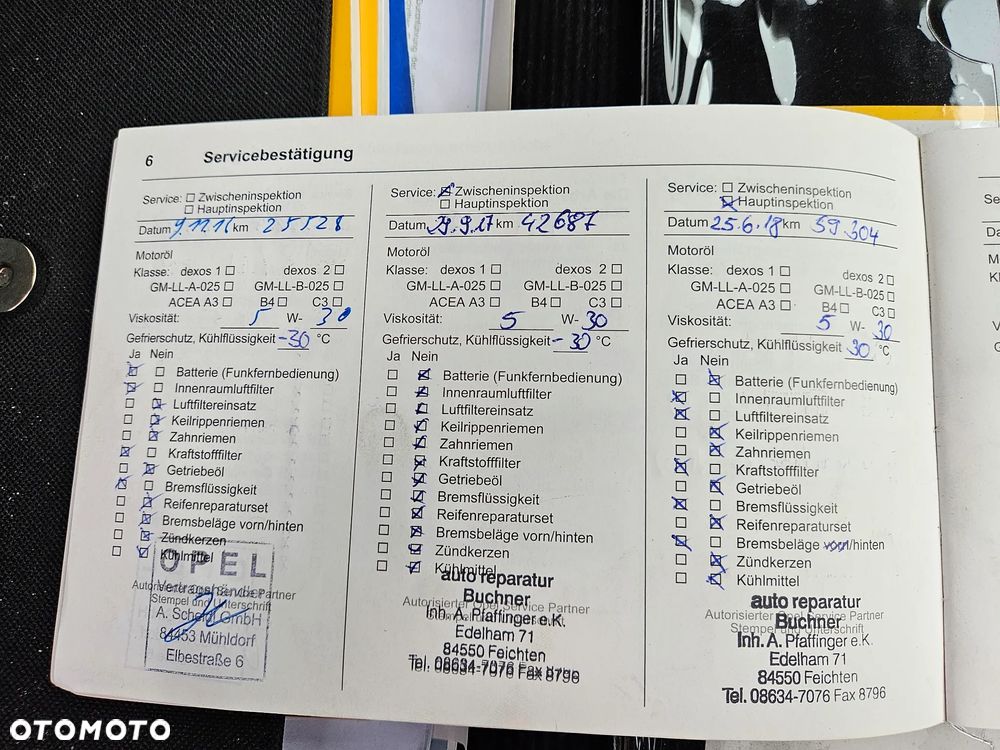 6 Servicebestätigung
Service: ☐ Zwischeninspektion
☐ Hauptinspektion
Datum 9.11.16 km 25528
Motoröl
Klasse: dexos 1 ☐ dexos 2 ☐
GM-LL-A-025 ☐ GM-LL-B-025 ☐
ACEA A3 ☐ B4 ☐ C3 ☐
Viskosität: 5 W- 30
Gefrierschutz, Kühlflüssigkeit -30 °C
Ja Nein
☒ ☐ Batterie (Funkfernbedienung)
☒ ☐ Innenraumluftfilter
☐ ☒ Luftfiltereinsatz
☐ ☒ Keilrippenriemen
☐ ☒ Zahnriemen
☒ ☐ Kraftstofffilter
☐ ☒ Getriebeöl
☒ ☐ Bremsflüssigkeit
☐ ☒ Reifenreparaturset
☐ ☒ Bremsbeläge vorn/hinten
☐ ☒ Zündkerzen
☐ ☒ Kühlmittel
OPEL
Vertragshändler
Autorisierter Opel Service Partner
Stempel und Unterschrift
A. Scheidl GmbH
84453 Mühldorf
Elbestraße 6
Service: ☒ Zwischeninspektion
☐ Hauptinspektion
Datum 29.9.17 km 42687
Motoröl
Klasse: dexos 1 ☐ dexos 2 ☐
GM-LL-A-025 ☐ GM-LL-B-025 ☐
ACEA A3 ☐ B4 ☐ C3 ☐
Viskosität: 5 W- 30
Gefrierschutz, Kühlflüssigkeit -30 °C
Ja Nein
☐ ☒ Batterie (Funkfernbedienung)
☐ ☒ Innenraumluftfilter
☐ ☒ Luftfiltereinsatz
☐ ☒ Keilrippenriemen
☐ ☒ Zahnriemen
☐ ☒ Kraftstofffilter
☐ ☒ Getriebeöl
☐ ☒ Bremsflüssigkeit
☐ ☒ Reifenreparaturset
☐ ☒ Bremsbeläge vorn/hinten
☐ ☒ Zündkerzen
☐ ☒ Kühlmittel
auto reparatur
Buchner
Autorisierter Opel Service Partner
Stempel und Unterschrift
Inh. A. Pfaffinger e.K.
Edelham 71
84550 Feichten
Tel. 08634-7076 Fax 8796
Service: ☐ Zwischeninspektion
☒ Hauptinspektion
Datum 25.6.18 km 59.304
Motoröl
Klasse: dexos 1 ☐ dexos 2 ☐
GM-LL-A-025 ☐ GM-LL-B-025 ☐
ACEA A3 ☐ B4 ☐ C3 ☐
Viskosität: 5 W- 30
Gefrierschutz, Kühlflüssigkeit 30 °C
Ja Nein
☐ ☒ Batterie (Funkfernbedienung)
☒ ☐ Innenraumluftfilter
☒ ☐ Luftfiltereinsatz
☐ ☒ Keilrippenriemen
☐ ☒ Zahnriemen
☒ ☐ Kraftstofffilter
☐ ☒ Getriebeöl
☒ ☐ Bremsflüssigkeit
☐ ☒ Reifenreparaturset
☒ ☐ Bremsbeläge vorn/hinten
☐ ☒ Zündkerzen
☐ ☒ Kühlmittel
auto reparatur
Autorisierter Opel Service Partner
Buchner
Stempel und Unterschrift
Inh. A. Pfaffinger e.K.
Edelham 71
84550 Feichten
Tel. 08634-7076 Fax 8796
OTOMOTO